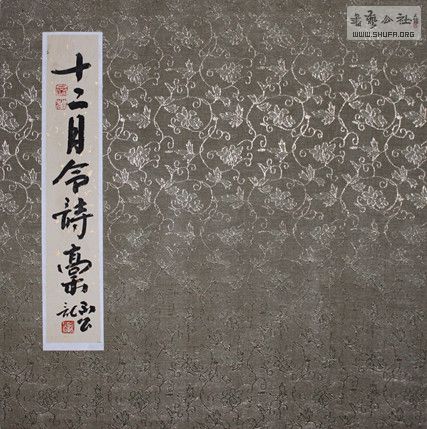 十二月令詩稾
書艺公社
WWW.SHUFA.ORG